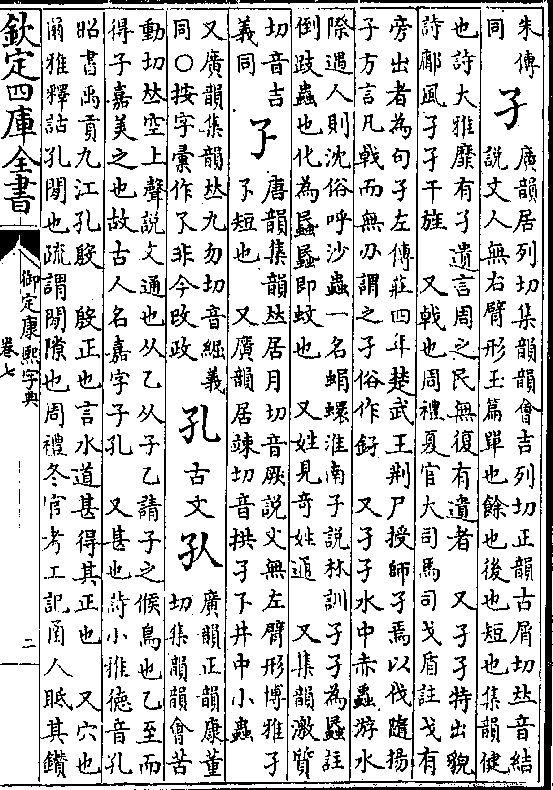 朱傳
同
孑
廣韻居列切集韻韻會吉列切正韻古屑切𠀤音結
說文人無右臂形玉篇單也餘也後也短也集韻健
也詩大雅靡有孑遺言周之民無復有遺者　又孑孑特出貌
詩鄘風孑孑干旄　又戟也周禮夏官大司馬司戈盾註戈有
旁出者為句孑左傳莊四年楚武王荆尸授師孑焉以伐隨揚
子方言凡戟而無刃謂之孑俗作釨　又孑孑水中赤蟲游水
際遇人則沈俗呼沙蟲一名蜎蠉淮南子說林訓孑孑為蟁註
倒跂蟲也化為蟁蟁即蚊也　又姓見奇姓通　又集韻激質
切音吉
義同
孒
唐韻集韻𠀤居月切音厥說文無左臂形博雅孑
孒短也　又廣韻居竦切音拱孑孒井中小蟲
又廣韻集韻𠀤九勿切音䘿義
同○按字彙作孓非今改政
孔
古文
㐁
廣韻正韻康董
切集韻韻會苦
動切𠀤空上聲說文通也从乙从子乙請子之候鳥也乙至而
得子嘉美之也故古人名嘉字子孔　又甚也詩小雅德音孔
昭書禹貢九江孔殷　殷正也言水道甚得其正也　又穴也
爾雅釋詁孔閒也疏謂閒隙也周禮冬官考工記函人眡其鑽
欽定四庫全書
御定康熙字典
卷七
二